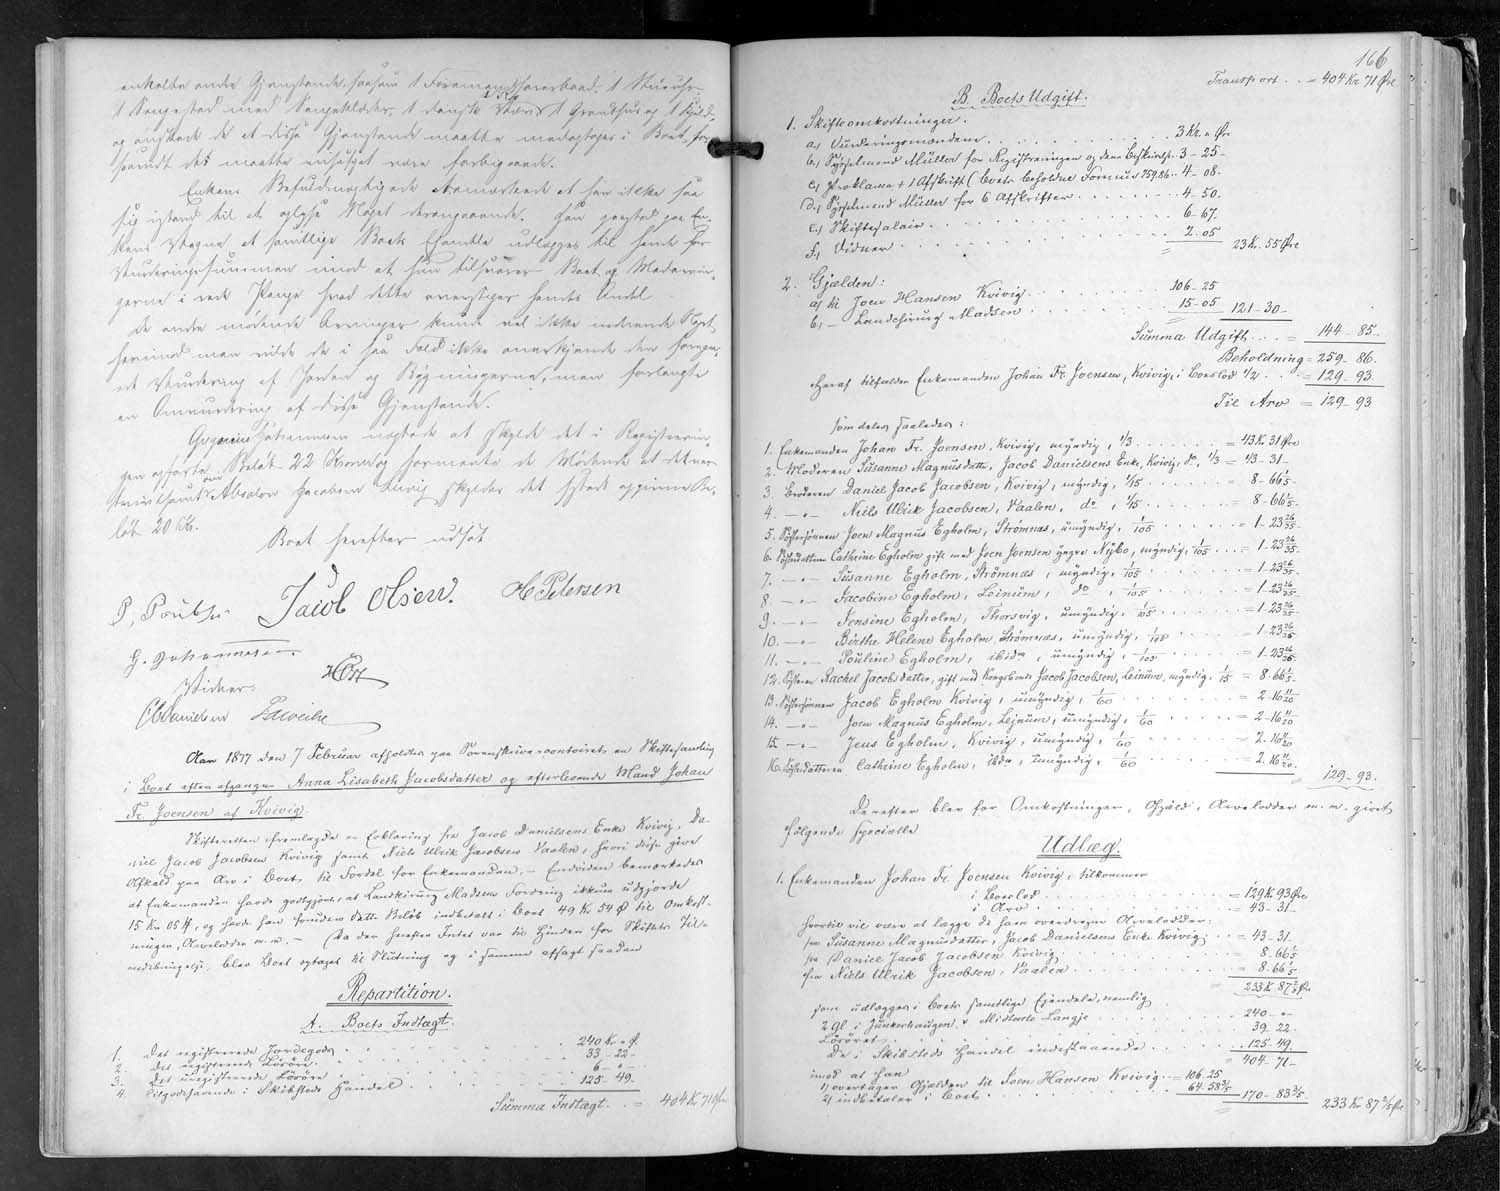 enkelte andre Gjenstande, saasom 1 Foremandshaverbaad, 1 Stueuhr,
1 Sengested med Sengeklæder, 1 dansk 1 Grandhus og 1
og ønskede de at disse Gjenstande maatte medoptages i Boet, for
saavidt det maatte ansees at være forbigaaende.
Enkens Befuldmægtigede bemærkede at han ikke saa
sig istand til at oplyse Noget desangaaende. Han paastod paa En-
kens Vegne at samtlige Boets Effecter udlægges til hende for
Vurderingssummen imod at hun tilsvarer Boet og Medarvin-
gerne i rede Penge hvad dette overstiger hendes Andel.
De andre mødende Arvinger kunde vel ikke indvende Noget
herimod men vilde de i saa Fald ikke anerkjende den foregaa-
ede Vurdering af Jorden og Bygningerne, men forlangte
en Omvurdering af disse Gjenstande.
Gregorius Johannesen nægtede at skylde det i Registrerin-
gen opførte Beløb 22 Kroner, og formente de Mødende at det var
som Absalon Jacobsen skylder det sidst opgivne Be-
løb 20 Kr.
Boet herefter udsat
P. Poulsen Jacob Olsen. H Petersen
G. Johannesen.
Vidner:
CDanielsen
Aar 1877 den 7 Februar afholdtes paa Sorenskrivercontoiret en Skiftesamling
i Boet efter afgangne Anna Lisabeth Jacobsdatter og efterlevende Mand Johan
Fr. Joensen af Kvivig.
Skifteretten fremlagde en Erklæring fra Jacob Danielsens Enke Kvivig, Da-
niel Jacob Jacobsen Kvivig samt Niels Ulrik Jacobsen Vaalen, hvori disse give
Afkald paa Arv i Boet til Fordel for Enkemanden. – Endvidere bemærkedes
at Enkemanden havde godtgjort, at Landkirurg Madsens Fordring ikkun udgjorde
15 Kr. 05 Ø, og havde han foruden dette Beløb indbetalt i Boet 49 Kr 54 Ø til Omkost-
ninger, Arvelodder m. m. – Da der herefter Intet var til Hinder for Skiftets Til-
endebringelse, blev Boet optaget til Slutning og i samme afsagt saadan
Repartition.
A. Boets Indtægt.
1. Det registrerede Jordegods . . . 240 Kr. " Ø.
2. Det registrerede Løsøre . . . 33 - 22 -
3. Det uregistrerede Løsøre . . . 6 - " -
4. Tilgodehavende i Skibsteds Handel . . . 125 - 49.
Summa Indtægt . . = 404 Kr 71 Øre
166
Transport . . = 404 Kr. 71 Øre
B. Boets Udgift.
1. Skifteomkostninger.
a, Vurderingsmændene . . . 3 Kr. " Øre
b, Sysselmand Müller for Registreringen og dens Beskrivelse 3 - 25 -
c, Proklama + 1 Afskrift (Boets beholdne Formue 259,86 . . 4 - 08.
d, Sysselmand Müller for 6 Afskrifter . . . 4 - 50.
e, Skiftesalair . . . 6 - 67.
f, Vidner . . . 2. 05 23 Kr. 55 Øre
2. Gjælden:
a, til Joen Hansen Kvivig . . . 106 - 25
b, – Landchirurg Madsen . . . 15 - 05 121 - 30 -
Summa Udgift . . . = 144 - 85.
Beholdning = 259 - 86.
Heraf tilfalder Enkemanden Johan Fr. Joensen, Kvivig, i Boeslod 1/2 . . . = 129 - 93.
Til Arv = 129 - 93
som deles saaledes:
1. Enkemanden Johan Fr. Joensen, Kvivig, myndig, 1/3 . . . = 43 Kr 31 Øre
2. Moderen Susanne Magnusdatter, Jacob Danielsens Enke, Kvivig, do, 1/3 = 43 - 31 -
3. Broderen Daniel Jacob Jacobsen, Kvivig, myndig, 1/15 . . . = 8 - 66 1/5
4. – " – Niels Ulrik Jacobsen, Vaalen, do, 1/15 . . . = 8 - 66 1/5
5. Søstersønnen Joen Magnus Egholm, Strømnæs, umyndig, 1/105 . . . = 1 - 23 26/35
6. Søsterdatteren Cathrine Egholm gift med Joen Joensen yngre Nybo, myndig, 1/105 . . . = 1 - 23 26/35
7. – " – Susanne Egholm, Strømnæs, myndig, 1/105 . . . = 1 - 23 26/35
8. – " – Jacobine Egholm, Leinum, do, 1/105 . . . = 1 - 23 26/35
9. – " – Jensine Egholm, Thorsvig, umyndig, 1/105 . . . = 1 - 23 26/35
10. – " – Birthe Helene Egholm Strømnæs, umyndig, 1/105 . . . = 1 - 23 26/35
11. – " – Pouline Egholm, ibidm, umyndig, 1/105 . . . = 1 - 23 26/35
12. Søsteren Rachel Jacobsdatter, gift med Kongsbonde Jacob Jacobsen, Leinum, myndig, 1/15 = 8 - 66 1/5
13. Søstersønnen Jacob Egholm Kvivig, umyndig, 1/60 . . . = 2 - 16 11/20
14. – " – Joen Magnus Egholm, Lejnum, umyndig, 1/60 . . . = 2 - 16 11/20
15. – " – Jens Egholm, Kvivig, umyndig, 1/60 . . . = 2. 16 11/20
16. Søsterdatteren Cathrine Egholm, ibdm, umyndig, 1/60 . . . = 2. 16 11/20
129 - 93.
Derefter blev for Omkostninger, Gjæld, Arvelodder m. m. givet
følgende specielle
Udlæg.
1. Enkemanden Johan Fr. Joensen Kvivig, tilkommer
i Boeslod . . . = 129 Kr. 93 Øre
i Arv . . . = 43 - 31 -
hvortil vil være at lægge de ham overdragne Arvelodder:
fra Susanne Magnusdatter, Jacob Danielsens Enke Kvivig . . = 43 - 31 -
fra Daniel Jacob Jacobsen Kvivig . . . 8. 66 1/5
fra Niels Ulrik Jacobsen, Vaalen . . . = 8 - 66 1/5
233 Kr 87 2/5 Øre
som udlægges i Boets samtlige Ejendele, nemlig
2 gl i Junkerhaugen, Midtarte Langje . . . 240 - " -
Løsøret . . . 39. 22 -
De i Skibsteds Handel indestaaende . . . 125 - 49.
imod at han = 404 - 71 -
1) overtager Gjælden til Joen Hansen Kvivig . . = 106. 25
2) indbetaler i Boet . . . 64 - 58 3/5 = 170 - 83 3/5 233 Kr 87 2/5 Øre